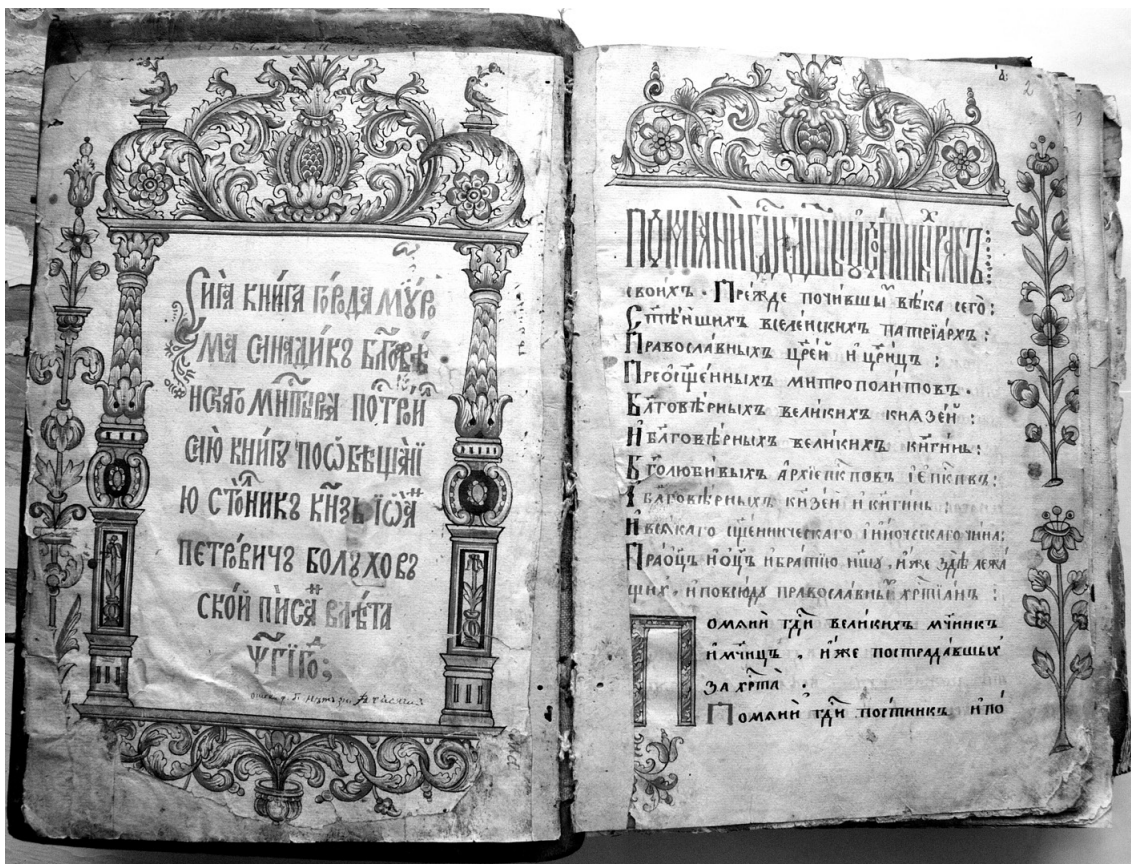 Сиѧ книга города мꙋро
ма синадикъ бл҃говѣ
скагѡ мн҃тырѧ построи
сию книгꙋ по ѡбѣщани
ю сто́лникъ кн҃зь їѡ́а́н
петро́вичъ болховъ
ско́й пи́сан в лѣ́та
҂ѱг҃і го;
Помѧни гд҃и дш҃ы ꙋсопшихъ рабъ
своихъ . Пре́жде почившы ѿ вѣка сего :
Ст҃ѣ́йшихъ вселе́нскихъ патрїа́рхъ :
Правосла́вныхъ цр҃е́й и цр҃и́цъ :
Преѡсщ҃е́нныхъ митрополи́товъ .
Бл҃говѣ́рныхъ вели́кихъ кнѧзе́й :
И бл҃говѣ́рныхъ вели́кихъ кн҃ги́нь :
Бг҃олюби́выхъ а́рхїепкⷭ҇повъ і е҆пкⷭ҇повъ :
І бл҃говѣ́рныхъ кн҃зе́й и кн҃ги́нь :
И всѧ́каго сщ҃е́нническаго и҆ и҆но́ческаго чи́на :
Прао҆ц҃ъ и҆ о҆ц҃ъ и҆ бра́тїю на́шꙋ , и҆́же здѣ̀ лежа́
щих , и повсю́дꙋ правосла́вныѧ хрⷭ҇тїа́нъ :
Помѧни́ гдⷭ҇и вели́кихъ мч҃никъ
и҆ мч҃ицъ , и҆́же пострада́вшых
за хрⷭ҇та̀ .
Помѧни́ гдⷭ҇и по́стникъ и҆ по